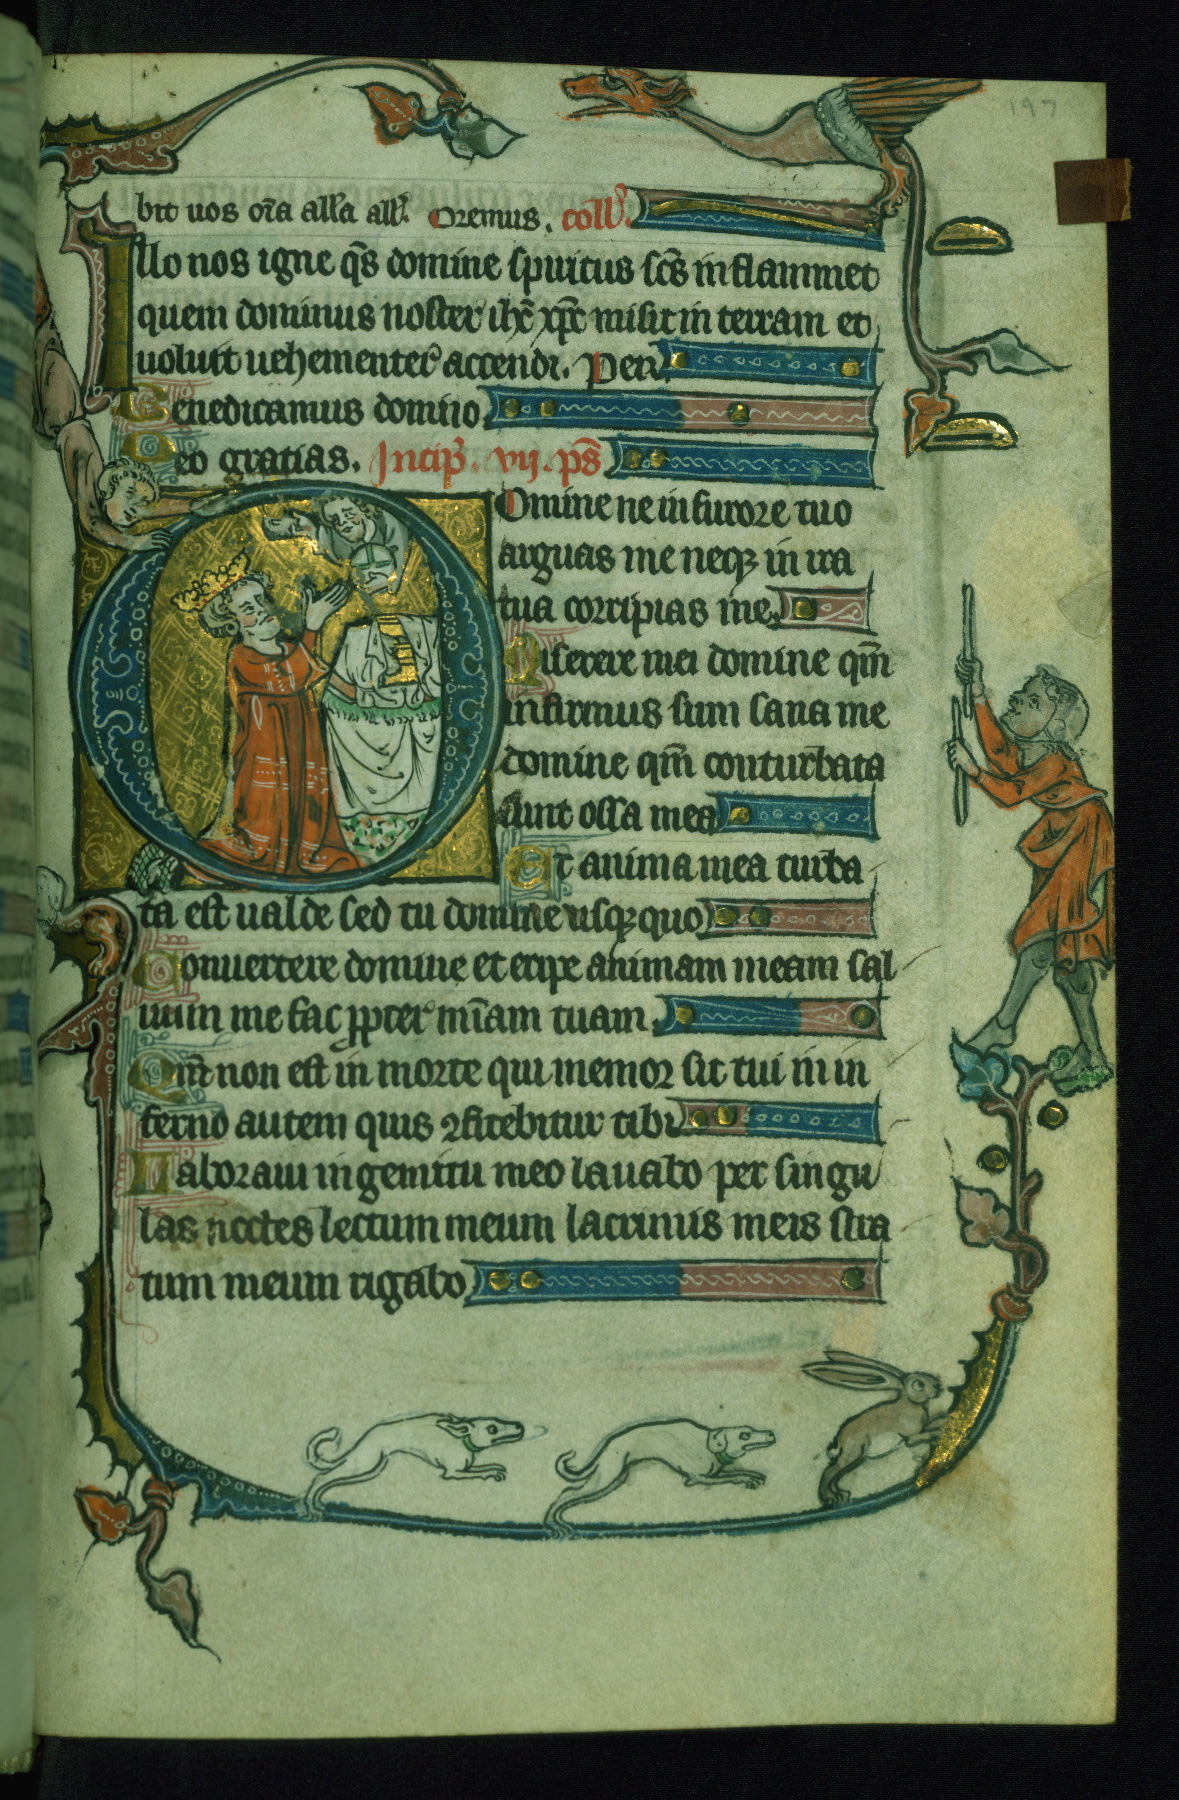 197
bit uos oīa all'a all'. Oremus. coll'.
Illo nos igne q̄s domine spiritus sc̄s inflammet
quem dominus noster ih̄c xp̄c misit in terram et
uoluit uehementer accendi. Per
Benedicamus domino.
Deo gratias. Incip̄. vij. ps̄
Domine ne in furore tuo
arguas me neq; in ira
tua corripias me.
Miserere mei domine qm̄
infirmus sum sana me
domine qm̄ conturbata
sunt ossa mea
Et anima mea turba
ta est ualde sed tu domine usq;quo
Conuertere domine et eripe animam meam sal
uum me fac ꝓpter mīam tuam.
Qm̄ non est in morte qui memor sit tui in in
ferno autem quis ꝯfitebitur tibi
Laboraui in gemitu meo lauabo per singu
las noctes lectum meum lacrimis meis stra
tum meum rigabo